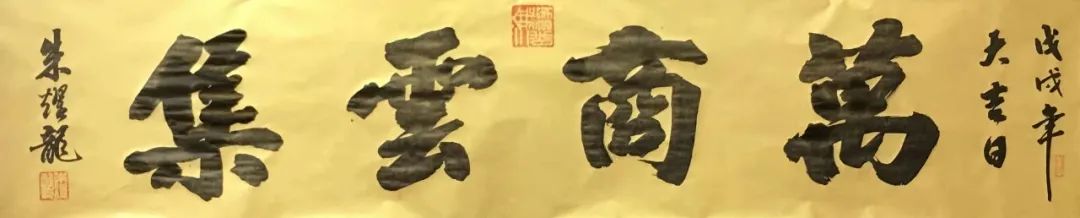 戊戌年
天吉日
萬商雲集
朱耀龍